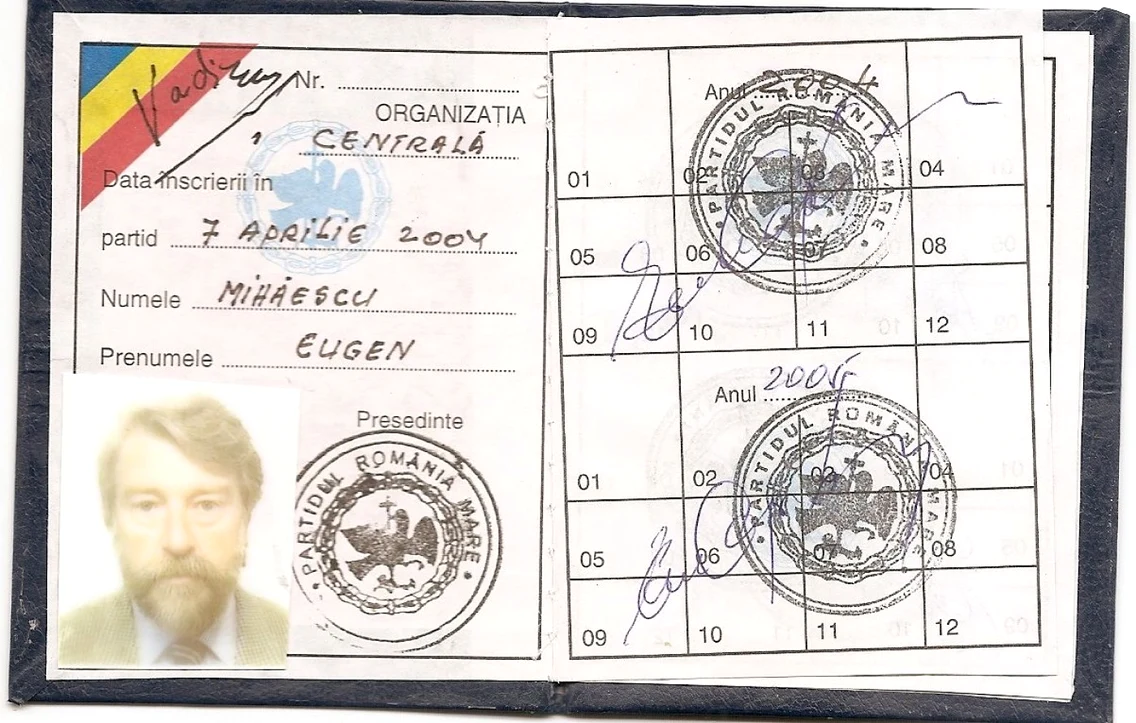 Vadim
Nr. ..............................
ORGANIZAȚIA
CENTRALĂ
Data înscrierii în
partid 7 APRILIE 2004
Numele MIHĂESCU
Prenumele EUGEN
Presedinte
PARTIDUL ROMÂNIA MARE
Anul 2004
PARTIDUL ROMÂNIA MARE
01 02 03 04
05 06 07 08
09 10 11 12
Anul
PARTIDUL ROMÂNIA MARE
01 02 03 04
05 06 07 08
09 10 11 12